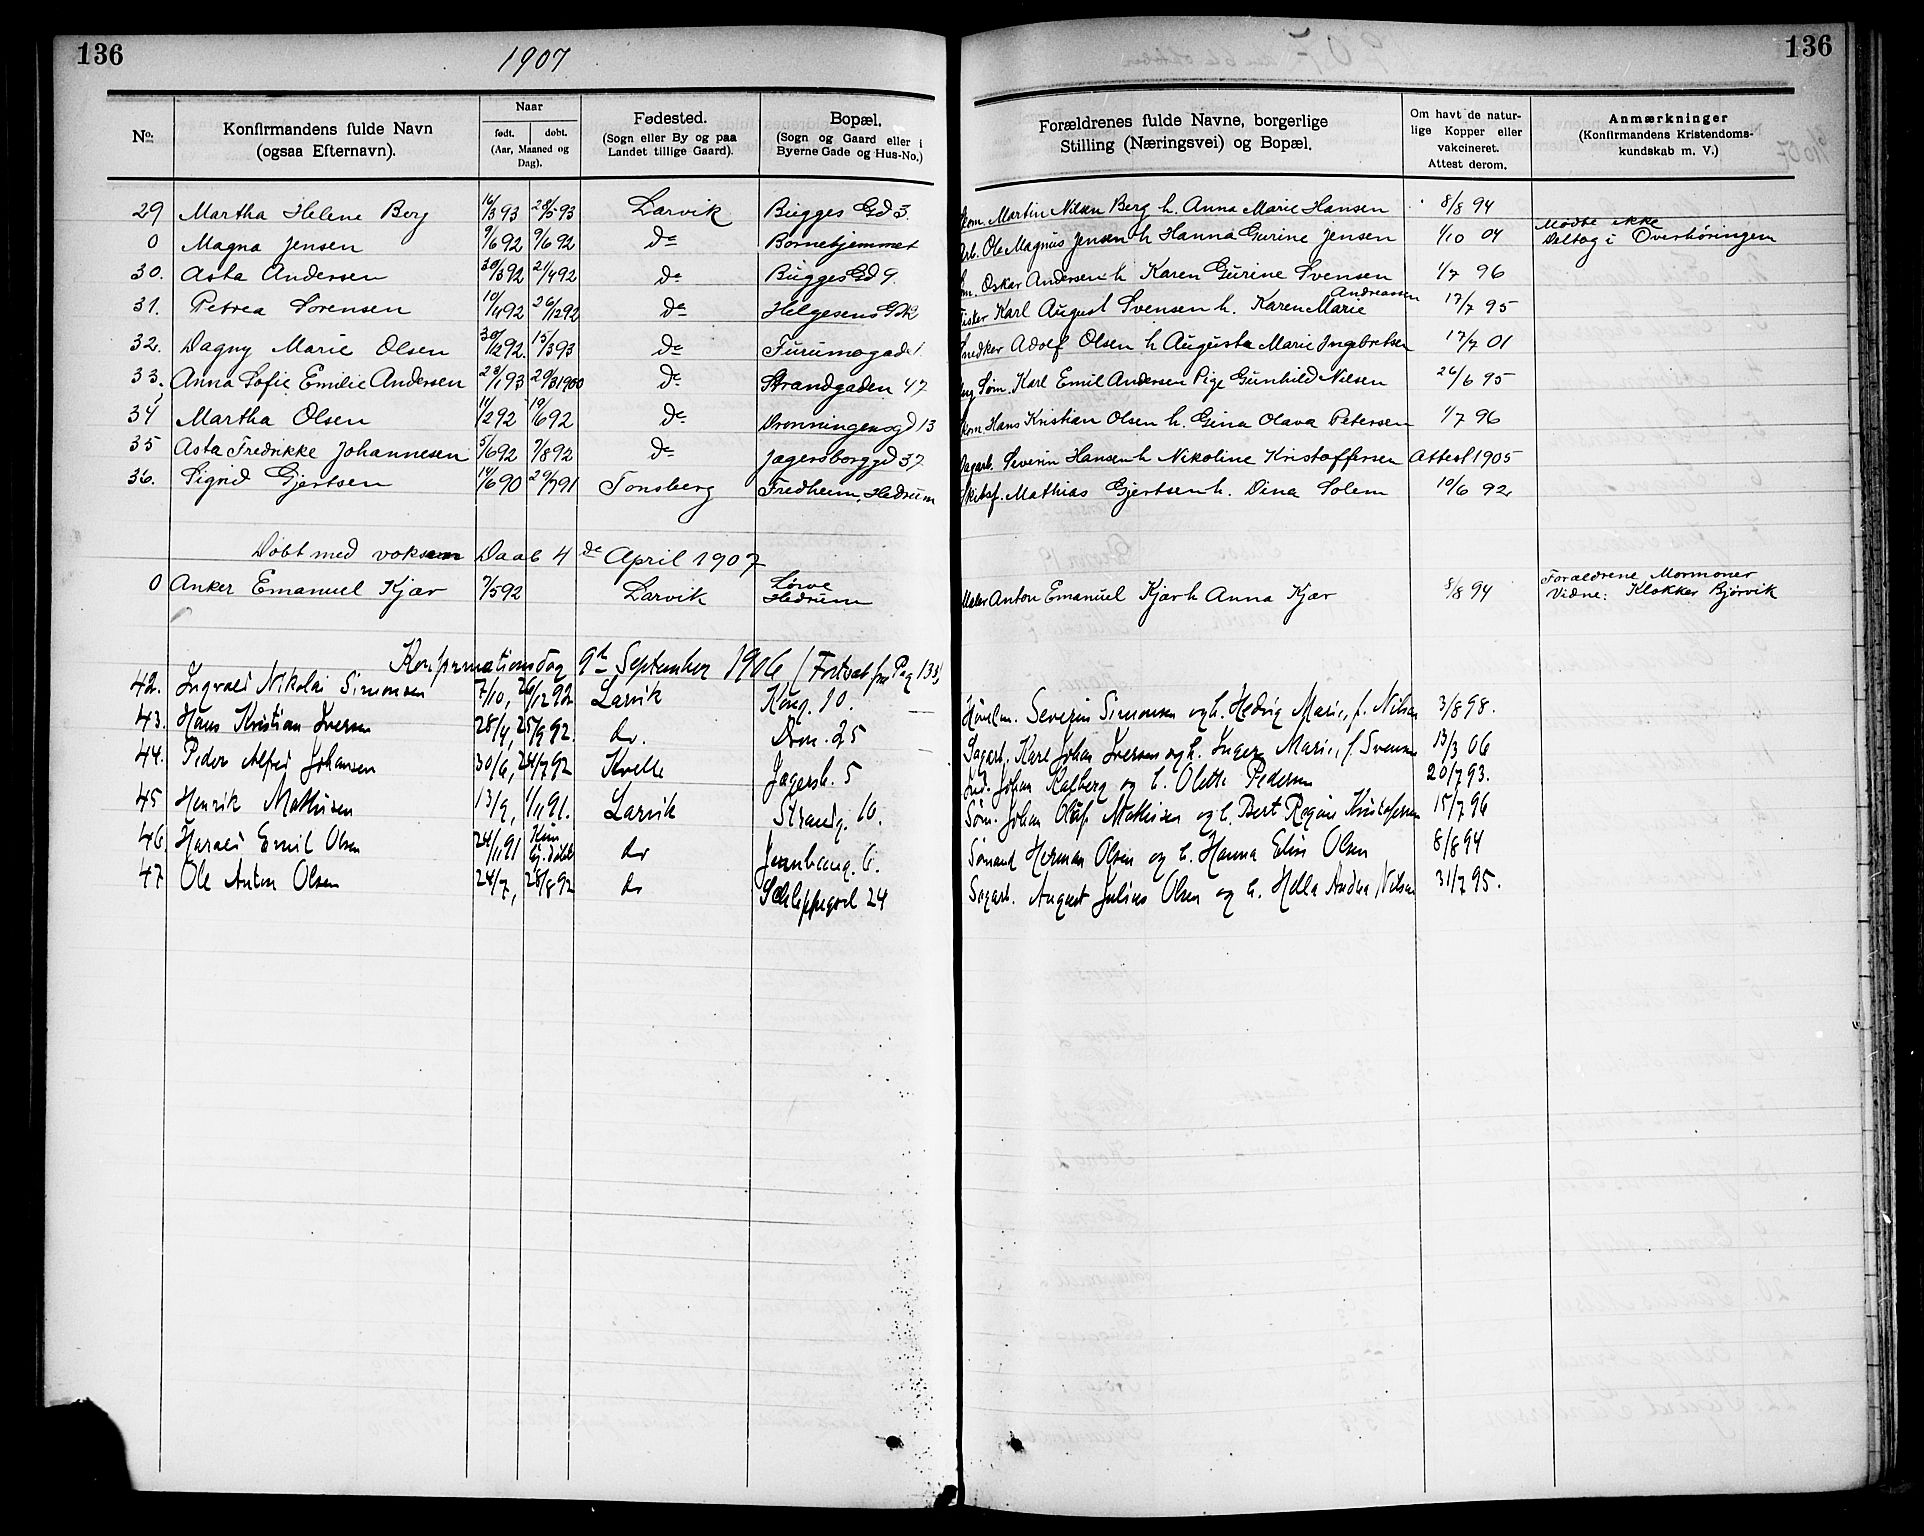 136
1907
136
No.
Konfirmandens fulde Navn
(ogsaa Efternavn).
Naar
født. døbt.
(Aar, Maaned og Dag).
Fødested.
(Sogn eller By og paa
Landet tillige Gaard).
Bopæl.
(Sogn og Gaard eller i
Byerne Gade og Hus-No.)
Forældrenes fulde Navne, borgerlige
Stilling (Næringsvei) og Bopæl.
Om havt de natur-
lige Kopper eller
vakcineret.
Attest derom.
Anmærkninger
(Konfirmandens Kristendoms-
kundskab m. V.)
29 Martha Helene Berg 16/3 93 28/5 93 Larvik Bugges Gd 3. Martin Nilsen Berg h. Anna Marie Hansen 8/8 94
0 Magna Jensen 9/6 92 9/6 92 do Bornehjemmet Arb. Ole Magnus Jensen h Hanna Gurine Jensen 1/10 04 Mødte ikke
Deltog i Overhøringen
30. Asta Andersen 30/3 92 21/4 92 do Bugges Gd 9. Oskar Andersen h Karen Gurine Svensen 1/7 96
31. Petrea Sorensen 10/4 92 26/12 92 do Helgesens G Karl August Svensen h. Karen Marie Andreassen 17/7 95
32. Dagny Marie Olsen 30/12 92. 15/3 93 do Furumogad 1 Snedker Adolf Olsen h Augusta Marie Ingebretsen 17/7 01
33. Anna Sofie Emilie Andersen 28/1 93 20/8 1900 do Strandgaden 47 Søm. Karl Emil Andersen Pige Gunhild Nilsen 26/6 95
34 Martha Olsen 11/2 92 19/6 92 do Dronningensgd 13 Hans Kristian Olsen h. Gina Olava Petersen 1/7 96
35 Asta Fredrikke Johannesen 5/6 92 7/8 92 do Jagersborggd 37 Dagarb. Severin Hansen h Nikoline Kristoffersen Attest 1905
36. Sigrid Gjertsen 14/6 90 29/7 91 Tonsberg Fredheim, Hedrum Skibsf. Mathias Gjertsen h. Dina Solem 10/6 92
Døbt med voksen Daab 4de April 1907
0 Anker Emanuel Kjær 7/5 92 Larvik Lørve
Hedrum Maler Anton Emanuel Kjær h Anna Kjær 8/8 94 Forældrene Mormoner
Vidne: Klokker Bjørvik
Konfirmationsdag 9de September 1906 (Fortsat fra Pag 135)
42. Ingvald Nikolai Simonsen 7/10, 26/12 92 Larvik Kong. 10. Severin Simonsen og h. Hedvig Marie, f. Nilsen 3/8 98.
43. Hans Kristian Iversen 28/4, 25/9 92. do. Dron. 25 Dagarb. Karl Johan Iversen og h. Inger Marie, f. Svensen 13/3 06
44. Peder Alfred Johansen 30/6, 24/7 92 Kvelle Jagersb. 5 Johan Kalberg og h. Olette Pedersen 20/7 93.
45 Henrik Mathisen 13/9, 1/11 91. Larvik Strandg. 10. Søm. Johan Oluf Mathisen og h. Bert Regine Kristofersen 15/7 96
46. Harald Emil Olsen 24/11 91 Kun
Gj. døbt do Jernbaneg. 6. Sømand Herman Olsen og h. Hanna Elise Olsen 8/8 94
47 Ole Anton Olsen 24/7, 28/8 92 do Schleppegrel 24 Dagarb. August Julius Olsen og h. Hella Andrea Nilsen 31/7 95.